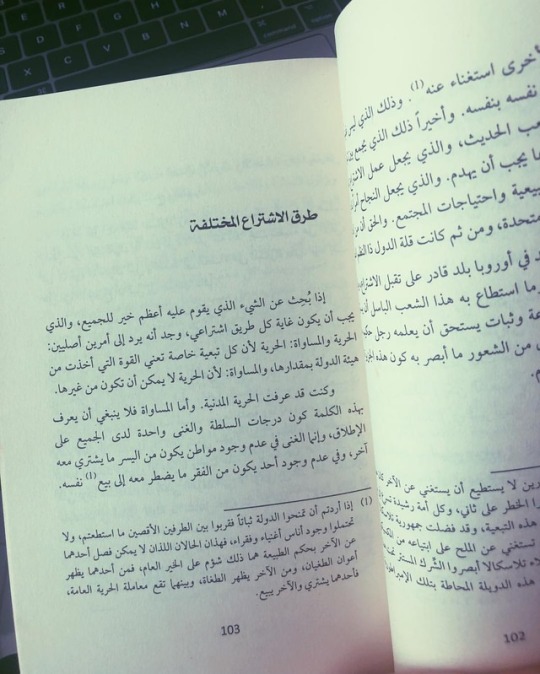 أخرى استغناء عنه (1). وذلك الذي
نفسه بنفسه. وأخيراً ذلك الذي يجمع
الحديث، والذي يجعل عمل
ما يجب أن يهدم. والذي يجعل النجاح
واحتياجات المجتمع. والحق أن
ومن ثم كانت قلة الدول
في أوروبا بلد قادر على تقبل
ما استطاع به هذا الشعب الباسل أن
وثبات يستحق أن يعلمه رجل
من الشعور ما أبصر به كون هذه
لا يستطيع أن يستغني عن الآخر
الخطر على ثاني، وكل أمة رشيدة
هذه التبعية، وقد فضلت جمهورية
تستغني عن الملح على ابتياعه من
تلاسكالا أبصروا الشرك المستتر
هذه الدويلة المحاطة بتلك
102
طرق الاشتراع المختلفة
إذا بُحِثَ عن الشيء الذي يقوم عليه أعظم خير للجميع، والذي
يجب أن يكون غاية كل طريق اشتراعي، وجد أنه يرد إلى أمرين أصليين:
الحرية والمساواة: الحرية لأن كل تبعية خاصة تعني القوة التي أخذت من
هيئة الدولة بمقدارها، والمساواة: لأن الحرية لا يمكن أن تكون من غيرها.
وكنت قد عرفت الحرية المدنية. وأما المساواة فلا ينبغي أن يعرف
بهذه الكلمة كون درجات السلطة والغنى واحدة لدى الجميع على
الإطلاق، وإنما الغنى في عدم وجود مواطن يكون من اليسر ما يشتري معه
آخر، وفي عدم وجود أحد يكون من الفقر ما يضطر معه إلى بيع (1) نفسه.
(1) إذا أردتم أن تمنحوا الدولة ثباتاً فقربوا بين الطرفين الأقصين ما استطعتم، ولا
تحتملوا وجود أناس أغنياء وفقراء، فهذان الحالان اللذان لا يمكن فصل أحدهما
عن الآخر بحكم الطبيعة هما ذلك شؤم على الخير العام، فمن أحدهما يظهر
أعوان الطغيان، ومن الآخر يظهر الطغاة، وبينهما تقع معاملة الحرية العامة،
فأحدهما يشتري والآخر يبيع.
103